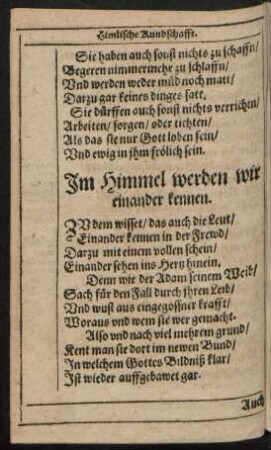 Himlische Kundschafft.
Sie haben auch sonst nichts zu schaffn/
Begeren nimmermehr zu schlaffn/
Vnd werden weder müd noch matt/
Darzu gar keines dinges satt.
Sie dürffen auch sonst nichts verrichten/
Arbeiten/ sorgen/ oder tichten/
Als das sie nur Gott loben fein/
Vnd ewig in jhm frölich sein.
Im Himmel werden wir
einander kennen.
ZV dem wisset/ das auch die Leut/
Einander kennen in der Frewd/
Darzu mit einem vollen schein/
Einander sehen ins Hertz hinein.
Denn wie der Adam seinem Weib/
Sach für den Fall durch jhren Leib/
Vnd wust aus eingegossner krafft/
Woraus vnd wem sie wer gemacht.
Also vnd nach viel mehrem grund/
Kent man sie dort im newen Bund/
In welchem Gottes Bildniß klar/
Ist wieder auffgebawet gar.
Auch